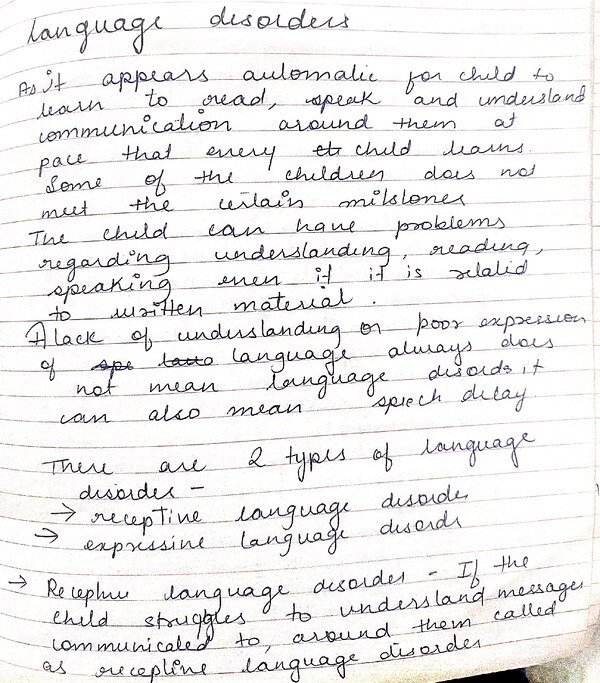 language disorders
As it appears automatic for child to
learn to read, speak and understand
communication around them at
pace that every child learns.
Some of the children does not
meet the certain milstones
The child can have problems
regarding understanding, reading,
speaking even if it is related
to written material.
A lack of understanding or poor expression
of language always does
not mean language disords, it
can also mean speech delay.
There are 2 types of language
disorder -
→ receptive language disorder
→ expressive language disords
→ Receptive language disorder - If the
child struggles to understand messages
communicated to, around them called
as receptive language disorder